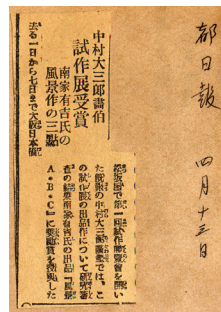 都日報　四月十三日
中村大三郎畫伯
試作展受賞
南家有吉氏の
風景作の三點
去る一日から七日まで大阪日本橋
松坂屋で第一回試作展覽會を開い
た既報の中村大三郎畫塾では、こ
の試作展の出品作について研究審
査の結果南家有吉氏の出品『風景
A・B・C』に奬勵賞を授與した